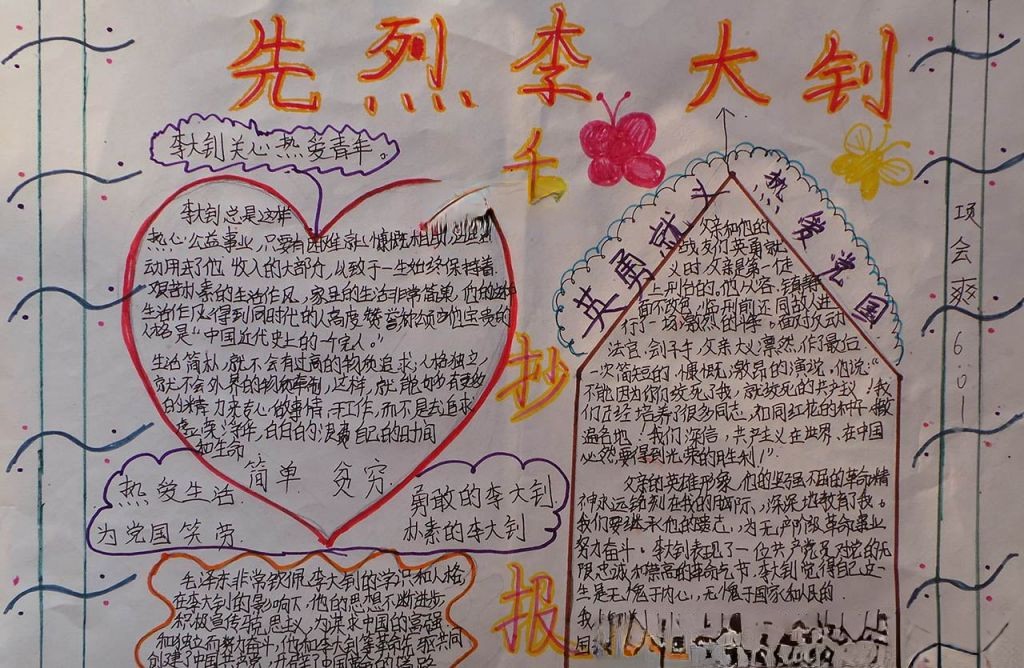 先烈李大钊
手抄报
李大钊关心热爱青年。
李大钊总是这样
热心公益事业,只要有困难就慷慨相助,这些
动用去了他收入的大部分,以致于一生始终保持着
艰苦朴素的生活作风,家里的生活非常简单,他的这种
生活作风得到同时代的人高度赞誉
人格是“中国近代史上的一个完人。”
生活简朴,就不会有过高的物质追求;人格独立,
就不会外界的物质牵制,这样,就能够有更多
的精力来专心做事情、干工作,而不是去追求
白白的浪费自己的时间
和生命
简单 贫穷
热爱生活
为党国劳
勇敢的李大钊
朴素的李大钊
毛泽东非常钦佩李大钊的学识和人格
在李大钊的影响下,他的思想不断进步
积极宣传马克思主义,为谋求中国的富强
和独立而努力奋斗,他和李大钊等革命先驱共同
创建了中国共产党
英勇就义
热爱党国
父亲和他的
战友们英勇就
义时,父亲是第一位
上刑台的,他从容、镇静,
面不改色,临刑前还同敌人进
行了一场激烈的斗争。面对反动
法官、刽子手,父亲大义凛然,作了最后
一次简短的、慷慨、激昂的演说,他说:“
不能因为你们绞死了我,就绞死的共产主义!我
们已经培养了很多同志,如同红花的种子,撒
遍各地!我们深信,共产主义在世界、在中国
必然要得到光荣的胜利!”
父亲的英雄形象,他的坚强不屈的革命精
神永远铭刻在我的脑际,深深地教育了我。
我们要继承他的遗志,为无产阶级革命事业
努力奋斗。李大钊表现了一位共产党员对党的无
限忠诚和崇高的革命气节。李大钊觉得自己这一
生是无愧于内心,无愧于国家和人民的。
我
国
项会爽 601